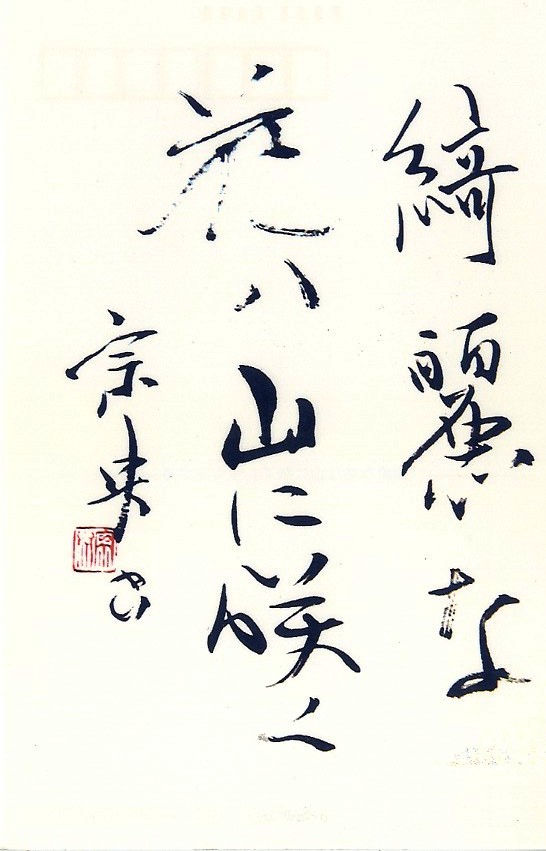 綺麗な
花ハ山に咲く
宗忠書